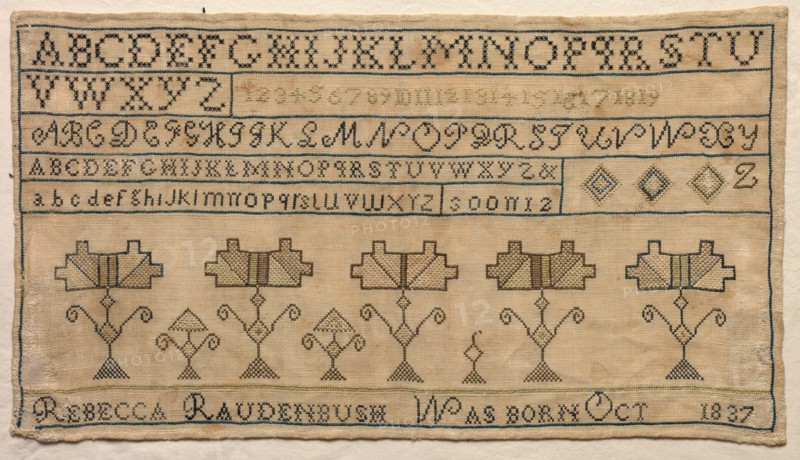 ABCDEFGHIJKLMNOPQRSTU
VWXYZ 12345678910111213141516171819
ABCDEFGHIJKLMNOPQRSTUVWXY
ABCDEFGHIJKLMNOPQRSTUVWXYZ& Z
abcdefghijklmnopqrstuvwxyz
REBECCA RAUDENBUSH WAS BORN OCT 1837
PHOTO12